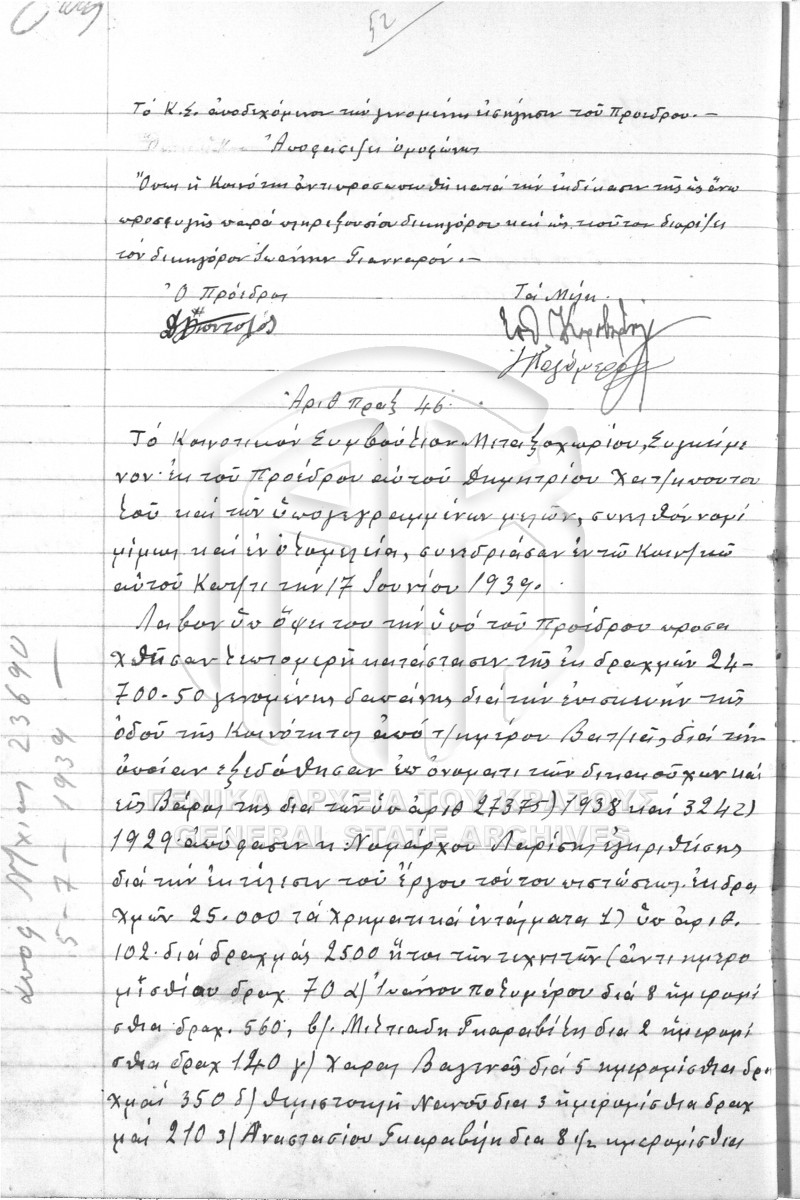 52
Τό Κ.Σ. ἀποδεχόμενον τήν γενομένην εἰσήγησιν τοῦ Προέδρου. —
Ἀποφασίζει ὁμοφώνως
Ὅπως ἡ Κοινότης ἀντιπροσωπευθῆ κατά τήν ἐκδίκασιν τῆς ὡς ἄνω
προσφυγῆς παρά πληρεξουσίου δικηγόρου καί ὡς τοιοῦτον διορίζει
τόν δικηγόρον Ἰωάννην Γιανναρόν. —
Ὁ Πρόεδρος
Τά Μέλη
Ἀριθ πραξ 46.
Τό Κοινοτικόν Συμβούλιον Μεταξοχωρίου, Συγκείμε
νον ἐκ τοῦ Προέδρου αὐτοῦ Δημητρίου Χατζηκοντο
ζοῦ καί τῶν ὑπογεγραμμένων μελῶν, συνελθόν νομί
μως καί ἐν ὁλομελεία, συνεδρίασαν ἐν τῶ Κοιν/κῶ
αὐτοῦ Κατ/τι τήν 17 Ἰουνίου 1939.
Λαβον ὑπ ὄψει του τήν ὑπό τοῦ Προέδρου προσα
χθῆσαν λεπτομερῆ κατάστασιν τῆς ἐκ δραχμῶν 24-
700-50 γενομένης δαπάνης διά τήν ἐπισκευήν τῆς
ὁδοῦ τῆς Κοινότητος ἀπό διά τήν
ὁποίαν ἐξεδόθησαν ἐπ ὀνοματι τῶν δικαιούχων καί
εἰς Βάρος της δια τῶν ὑπ ἀριθ 27375)1938 καί 3242)
1929 ἀπόφασιν κ. Νομάρχου Λαρίσης ἐγκριθείσης
διά τήν ἐκτέλεσιν τοῦ ἔργου τούτου πιστώσεως ἐκ δρα
χμῶν 25.000 τά Χρηματικά ἐντάλματα 1) ὑπ ἀριθ.
102 διά δραχμάς 2500 ἤτοι τῶν τεχνιτῶν (ἀντι ημερο
μισθίου δραχ 70 α) Ἰωάννου Πολυμέρου διά 8 ἡμερομί
σθια δραχ. 560, β). Μιλτιαδη Γκαραβέλη δια 2 ἡμερομί
σθια δραχ 140 γ) Χαραλ Βαγενᾶς διά 5 ημερομίσθια δρα
χμαί 350 δ) Θεμιστοκλῆ Νανοῦ δια 3 ἡμερομίσθια δραχ
μαί 210 Ἀναστασίου Γκαραβέλη δια 8 1/2 ημερομίσθια
23690
5-7-1939 —
ΓΕΝΙΚΑ ΑΡΧΕΙΑ ΤΟΥ ΚΡΑΤΟΥΣ
GENERAL STATE ARCHIVES